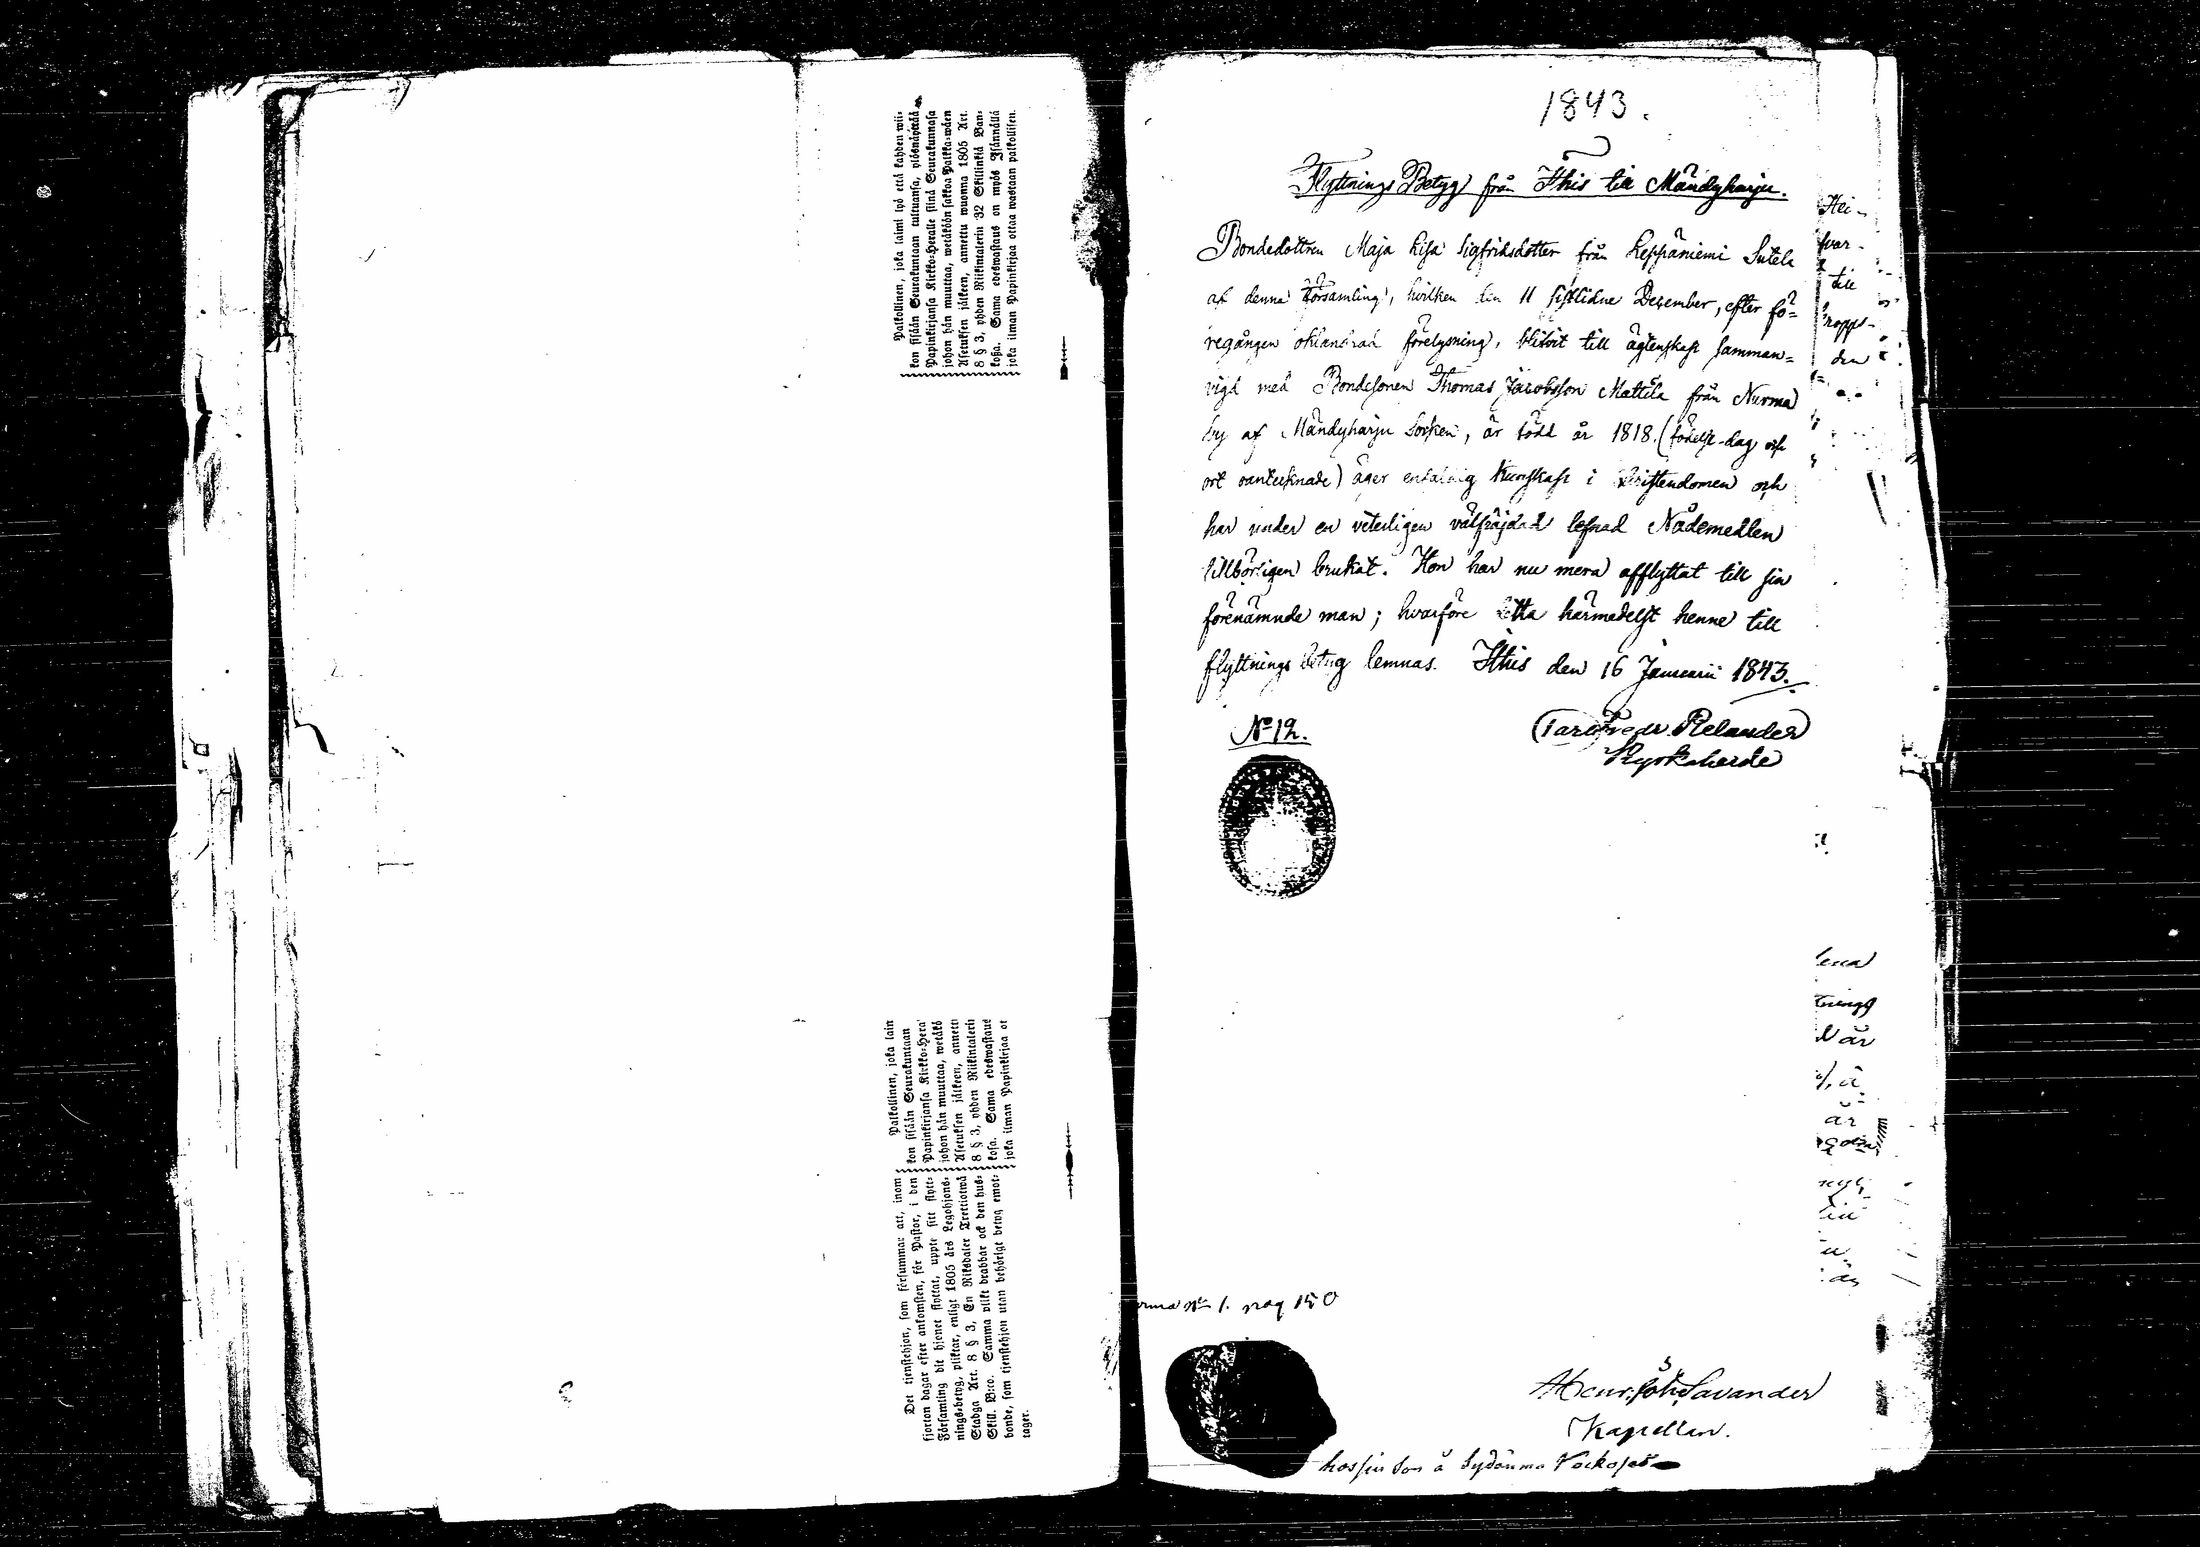 Palkollinen, joka laimi lyö että kahden wii-
kon sisään Seurakuntaan tultuansa, ylösnäyttää
Papinkirjansa Kirkko-Heralle siinä Seurakunnasa
johon hän muuttaa, wetäköön sakkoa Palkka-wäen
Asetuksen jälkeen, annettu wuonna 1805 Art.
8 § 3, yhden Riikintalerin 32 Skillinkiä Ban-
kosa. Sama edeswastaus on myös Isännällä
joka ilman Papinkirjaa ottaa wastaan palkollisen.
Palkollinen, joka laim
kon sisään Seurakuntaan
Papinkirjansa Kirkko-Hera
johon hän muuttaa, wetäkö
Asetuksen jälkeen, annettu
8 § 3, yhden Riikintalerin
kosa. Sama edeswastaus
joka ilman Papinkirjaa ot
Det tjenstehjon, som försummar att, inom
fjorton dagar efter ankomsten, för Pastor, i den
Församling dit hjonet flyttat, uppte sitt flytt-
nings-betyg, pliktar, enligt 1805 års Legohjons-
Stadga Art. 8 § 3, En Riksdaler Trettiotwå
Skill. B:co. Samma plikt drabbar ock den hus-
bonde, som tjenstehjon utan behörigt betyg emot-
tager.
1843.
Flyttnings Betyg från Ithis till Mändyharju.
Bondedottren Maja Lisa Sigfridsdotter från Leppäniemi Sutela
af denna Församling, hvilken den 11 sistlidne December, efter fö-
regången oklandrad förelysning, blifvit till ägtenskap samman-
vigd med Bondesonen Thomas Jacobsson Mattila från Nurma
by af Mändyharju Socken, är född år 1818. (födelse-dag och
ort oantecknade) äger enfaldig kunskap i Kristendomen och
har under en veterligen välfräjdad lefnad Nådemedlen
tillbörligen brukat. Hon har nu mera afflyttat till sin
förenämnde man; hvarföre detta härmedelst henne till
flyttnings betyg lemnas. Ithis den 16 Januarii 1843.
No 12.
Carl Fredr. Relander
Kyrkoherde
Hei-
svar-
till
den
lena
tnings
är
är
No 1. pag 150
Henr. Joh. Savander
Kapellan.